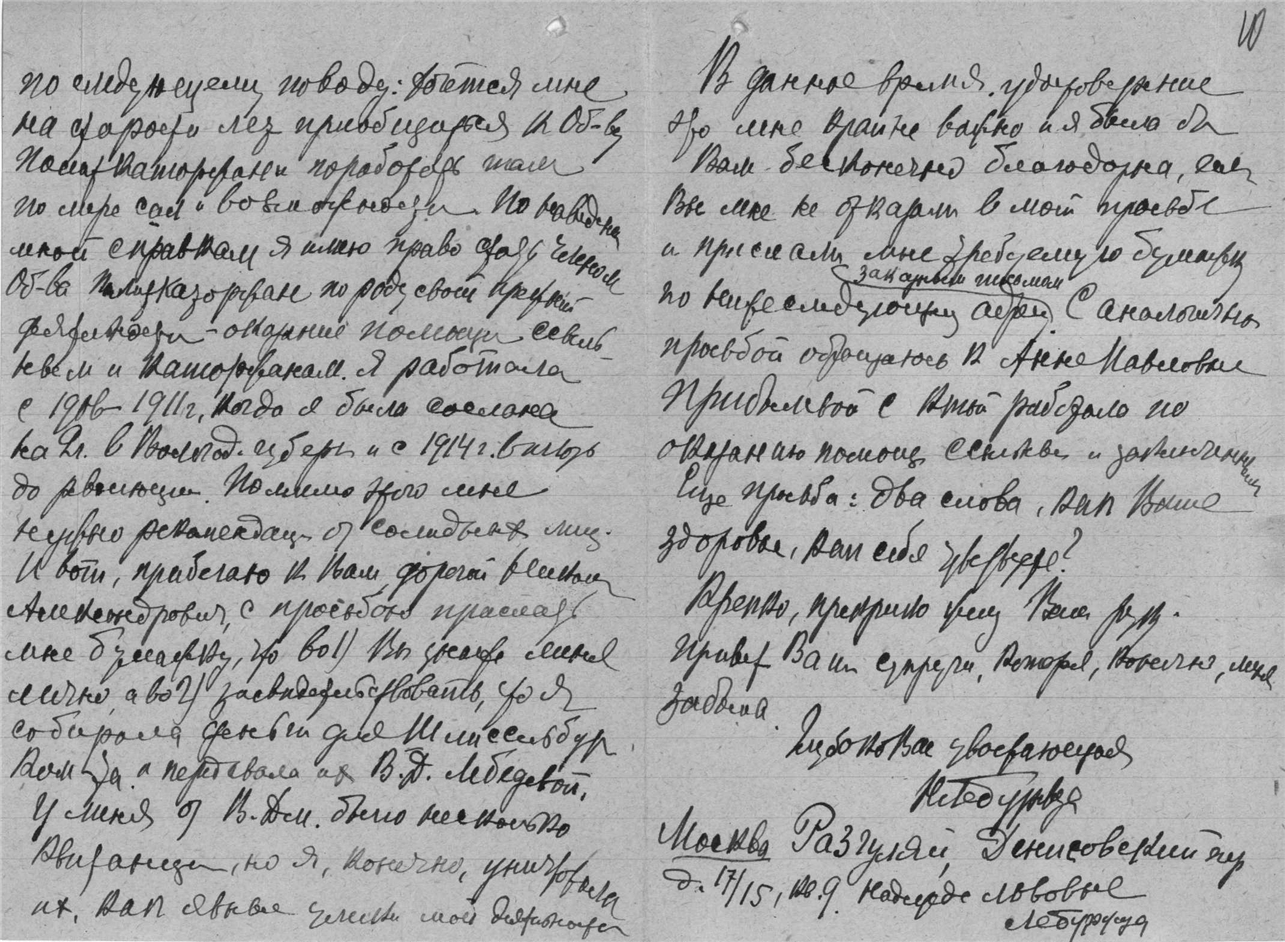 по следующему поводу: хочется мне
на старости лет приобщиться к Об-ву
Политкаторжан и поработать там
по мере сил и возможности. По наведен
мной справкам я имею право стать членом
Об-ва Политкаторжан по роду своей прежней
деятельности – оказание помощи ссыль-
ным и каторжанам. Я работала
с 1906–1911 г., когда я была сослана
на 2 г. в Вологод. губерн и с 1914 г. вплоть
до революции. Помимо этого мне
нужно рекомендац от солидных лиц.
И вот, прибегаю к Вам, дорогой
Александрович, с просьбою прислать
мне бумажку, что во 1) Вы знаете меня
лично, а во 2) засвидетельствовать, что я
собирала деньги для Шлиссельбур
Ком-та и передавала их В. Д. Лебедевой.
У меня от В. Дм. было несколько
квитанций, но я, конечно, уничтожила
их, как явные улики моей деятельности
10
В данное время удостоверение
это мне крайне важно и я была бы
Вам бесконечно благодарна, если
Вы мне не отказали в моей просьбе
и прислали мне требуемую бумажку
(заказным письмом)
по нижеследующему адресу. С аналогичной
просьбой обращаюсь к Анне Павловне
Прибылевой с к-той работала по
оказанию помощи ссыльным и заключенным
Еще просьба: два слова, как Ваше
здоровье, как себя чувствуете?
Крепко, прекрепко жму Вам руку.
Привет Вашей супруге, которая, конечно, меня
забыла.
Глубоко Вас уважающая
Москва Разгуляй, Денисовский пер
д. 17/15, кв. 9. Надежде Львовне